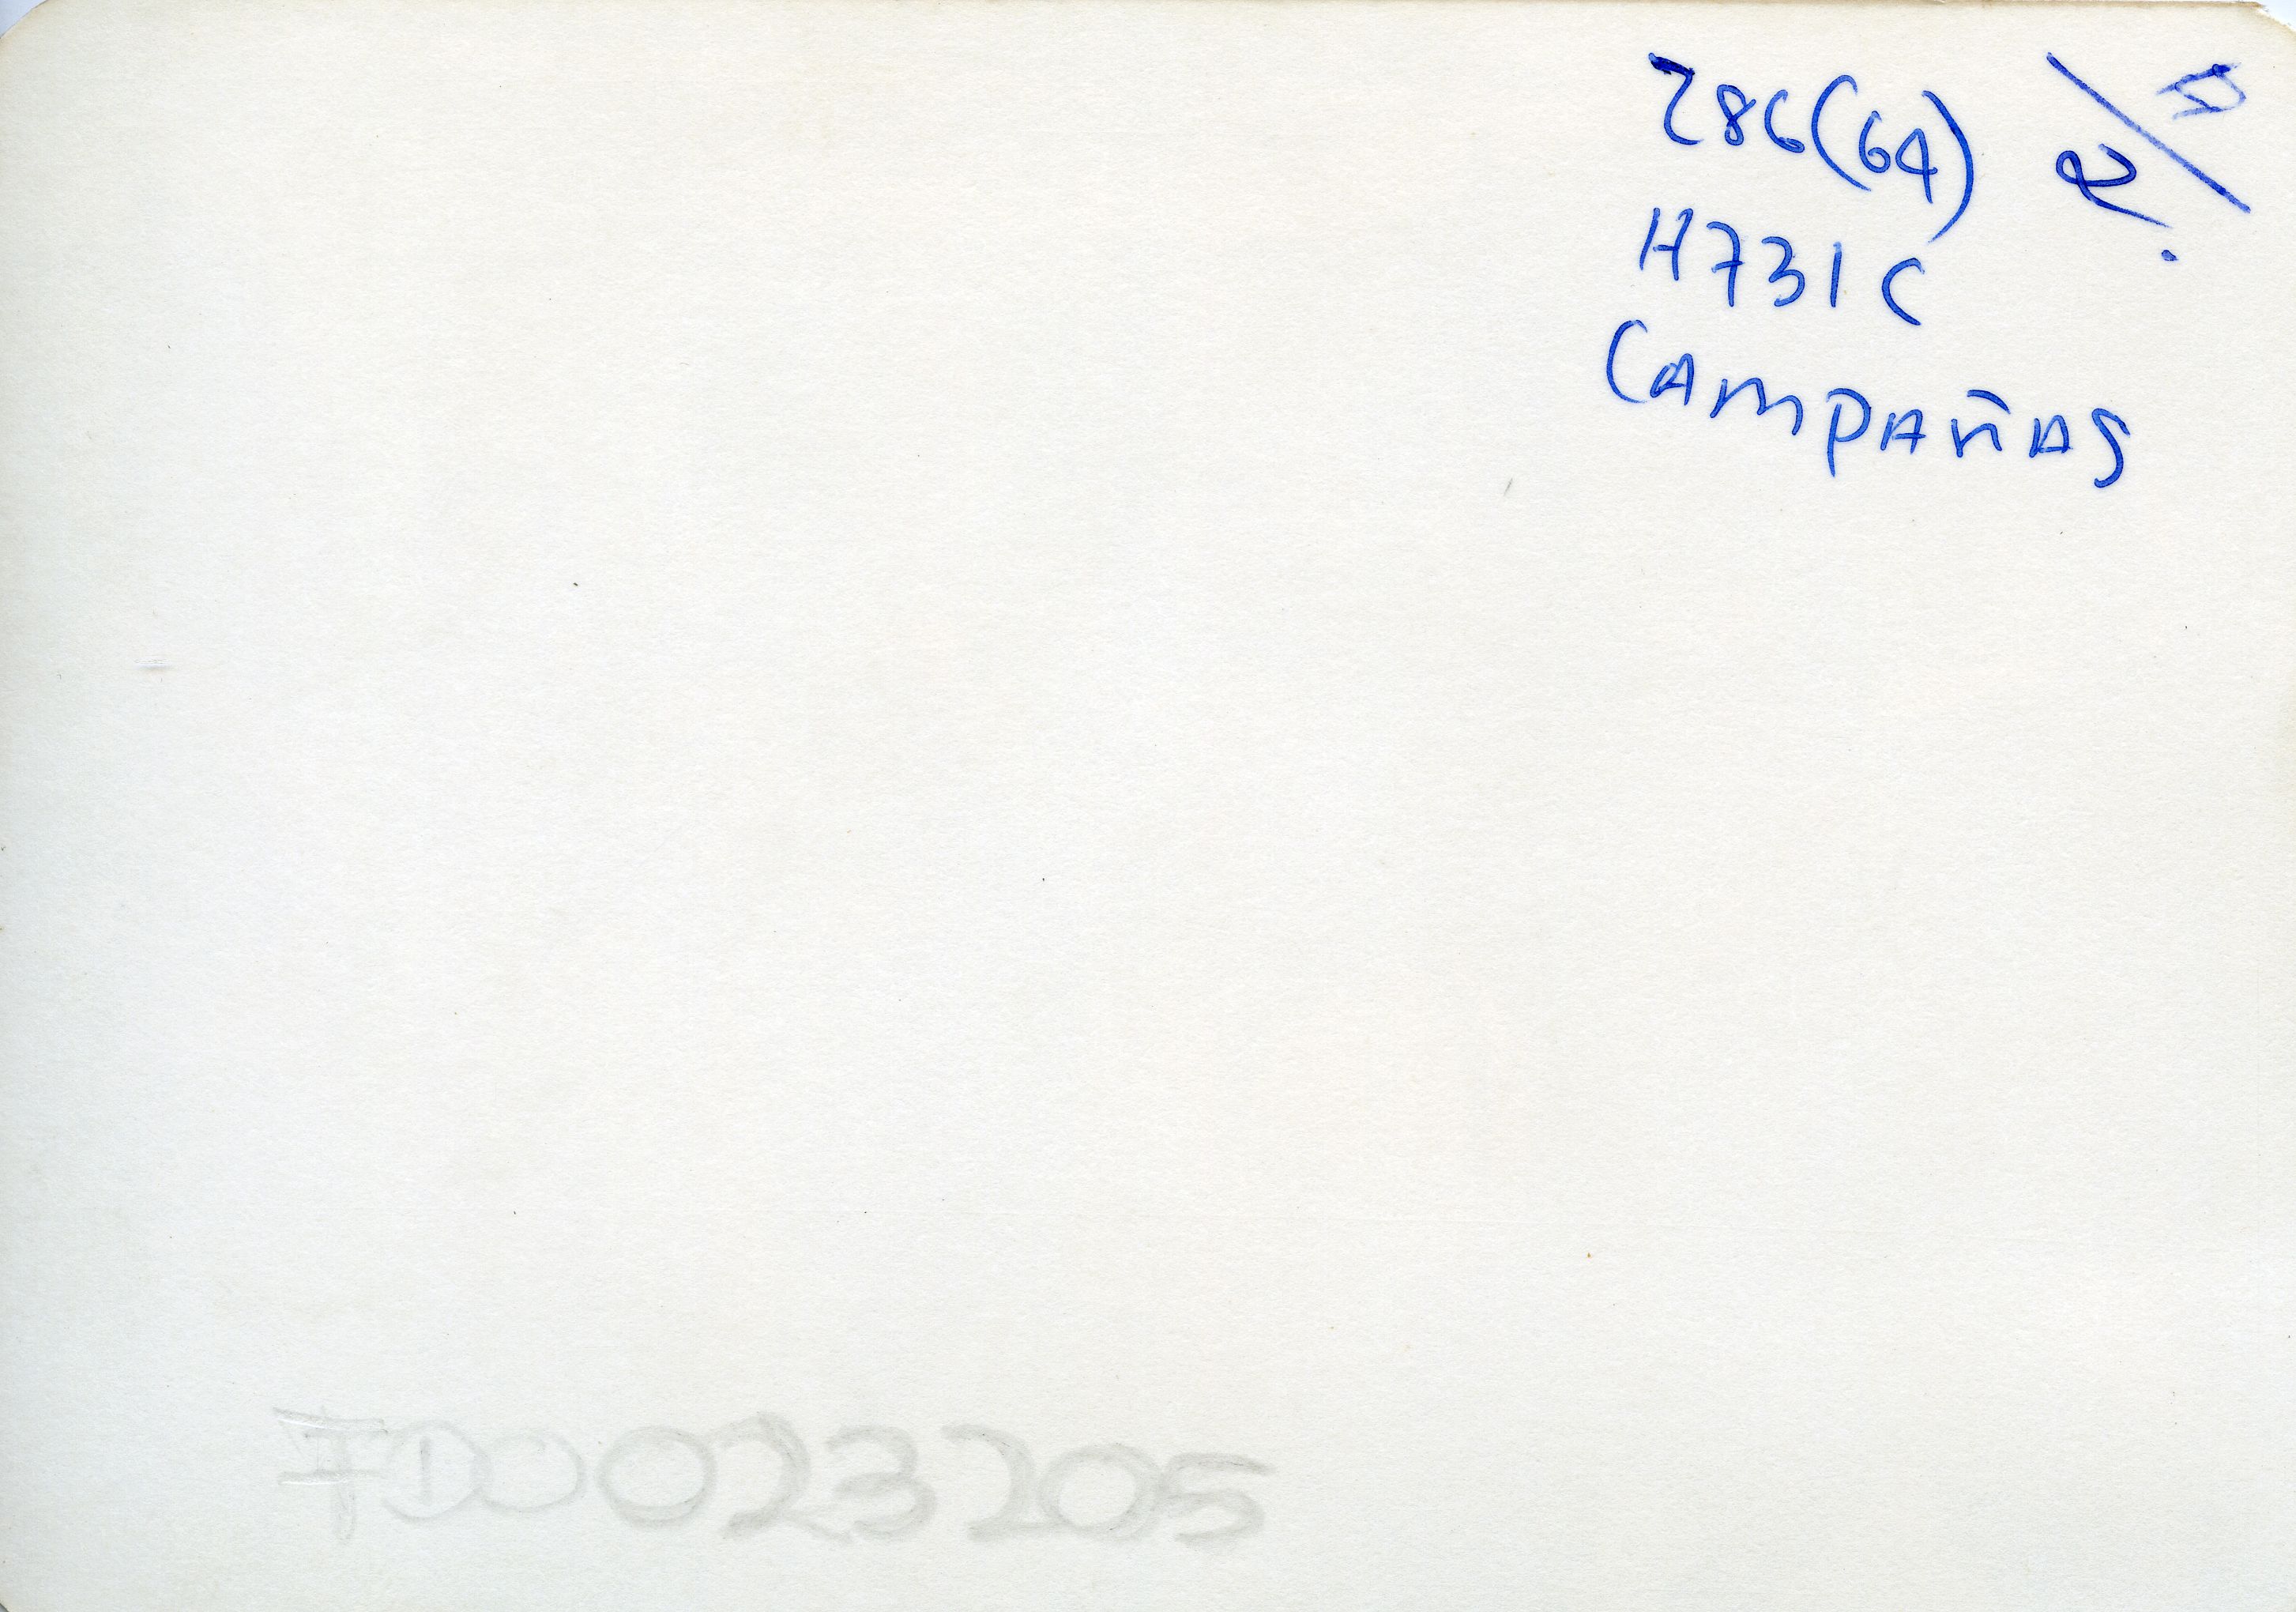 286(64)
H731C
CAMPAÑAS
FD0023205